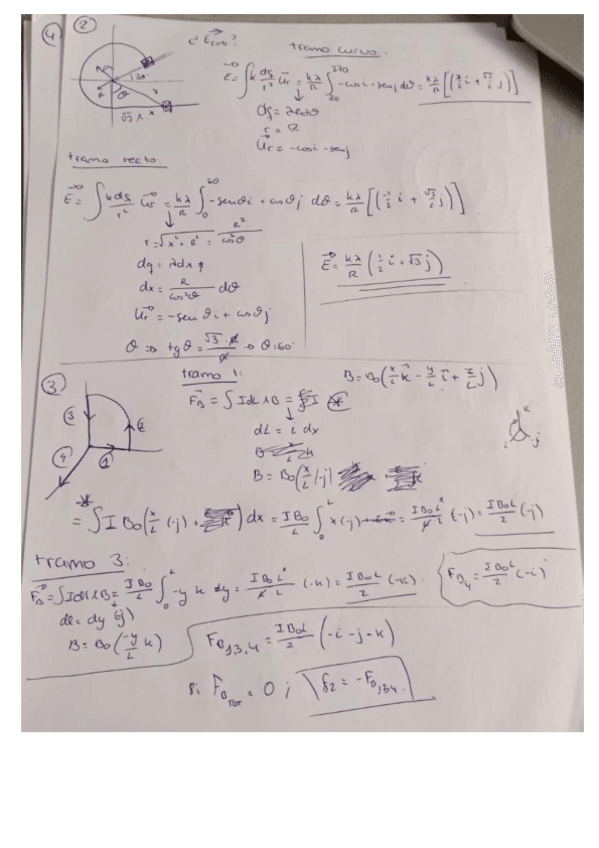 ④ ②
¿ E⃗(0,0)?
tramo curvo:
E⃗ = ∫ k dq/r² u⃗r = kλ/R ∫₃₀²⁷⁰ -cos i - sen j dθ = kλ/R [(3/2 i + √3/2 j)]
dq = λRdθ
r = R
u⃗r = -cos i - sen j
120
R θ r
√3 R x
tramo recto:
E⃗ = ∫ k dq/r² u⃗r = kλ/R ∫₀⁶⁰ -senθ i + cosθ j dθ = kλ/R [(-1/2 i + √3/2 j)]
r = √x² + R² = R²/cos²θ
dq = λdx
dx = R/cos²θ dθ
E⃗ = kλ/R (1/2 i + √3 j)
u⃗r = -senθ i + cosθ j
θ ⇒ tgθ = √3·R/R → θ = 60°
③
tramo 1:
B = B₀(x/L k⃗ - y/L i⃗ + z/L j)
F⃗B = ∫ Idl ∧ B = I
dL = i dx
B = B₀(x/L (-j)
③ ② ④ ①
i j k
= ∫ I B₀(x/L (-j) + ) dx = IB₀/L ∫₀ᴸ x(-j) = IB₀L²/2L (-j) = IB₀L/2 (-j)
tramo 3:
F⃗B = ∫ Idl ∧ B = IB₀/L ∫₀ᴸ -y k dy = IB₀L²/2L (-k) = IB₀L/2 (-k)
FB₄ = IB₀L/2 (-i)
dl = dy (j)
B = B₀(-y/L k)
FB₁,₃,₄ = IB₀L/2 (-i -j -k)
si FBTOT = 0 ; f₂ = -FB₁₃₄